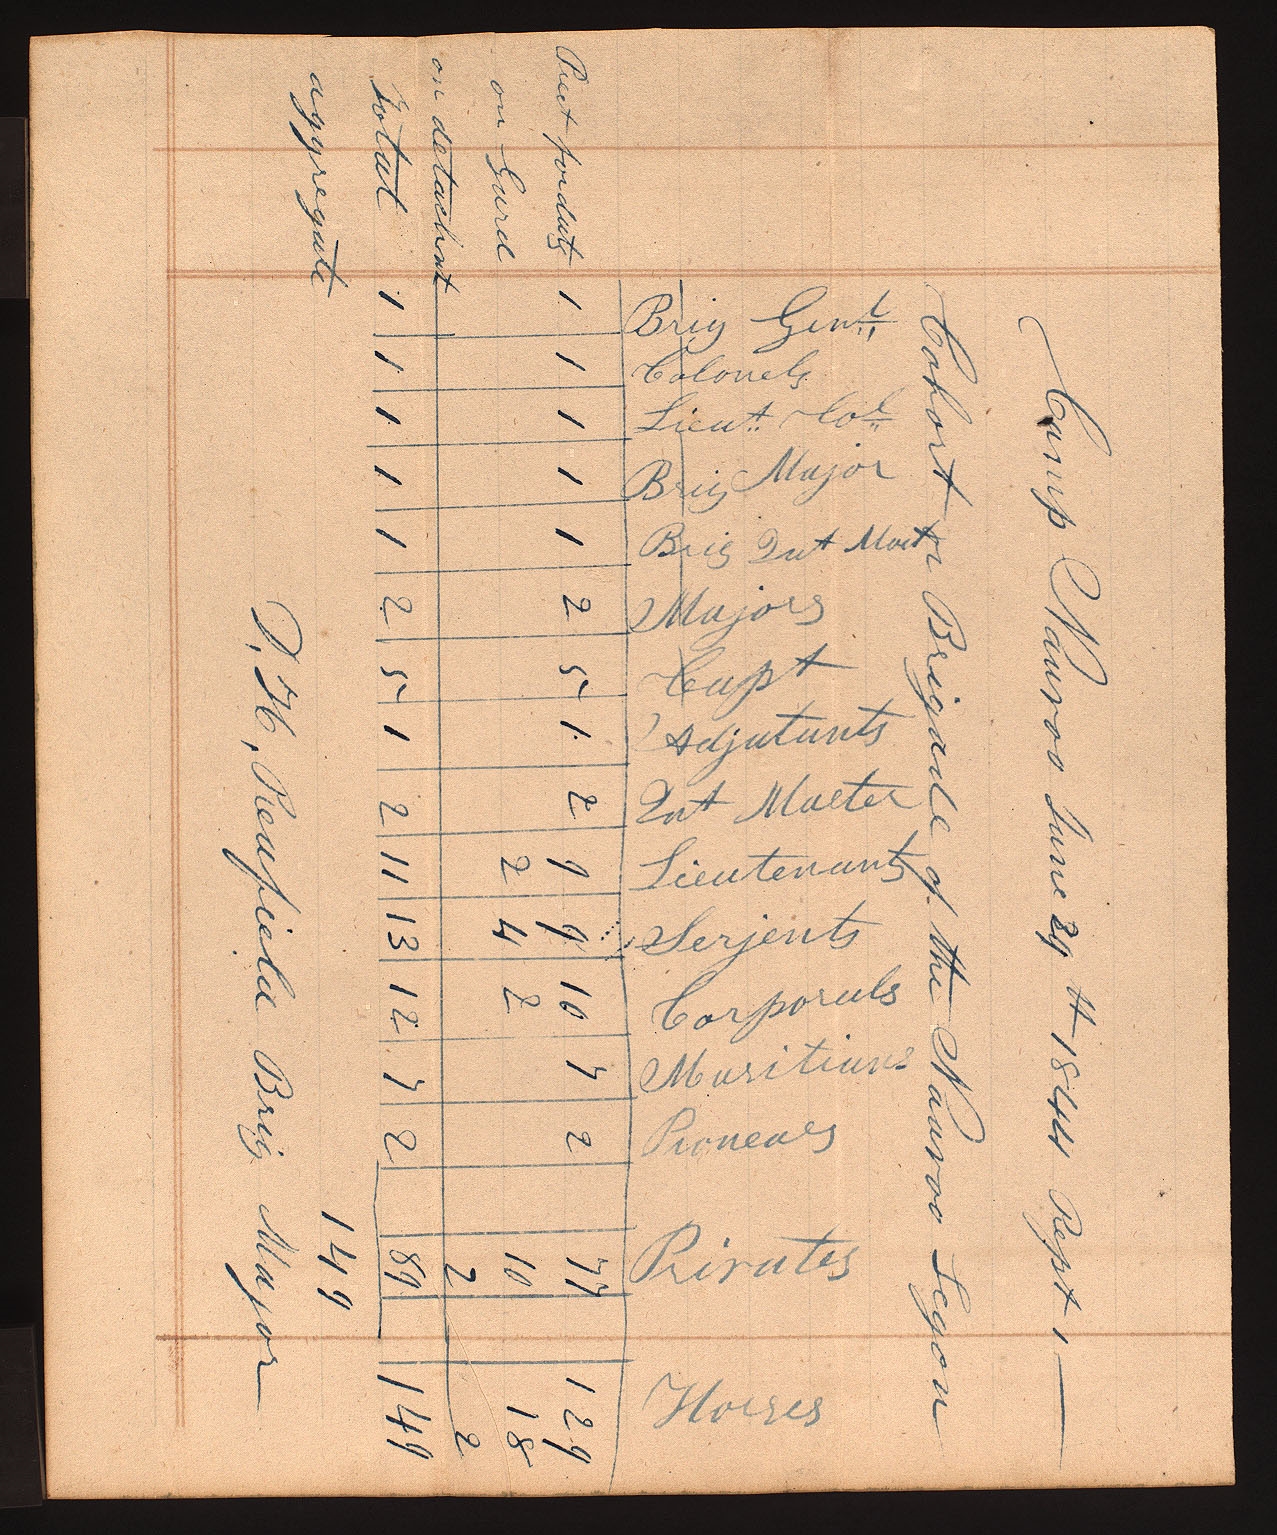 Camp Nauvoo June 29th 1844 Rept 1
Cohort or Brigade of the Nauvoo Legon
Brig Genl
Colonels
Lieut Col
Brig Major
Brig Qut Mast
Majors
Capt
Adjutants
Qut Master
Lieutenants
Serjents
Corporals
Musitians
Pioneers
Privates
Horses
Prest for duty 1 1 1 1 1 2 5 1 2 9 9 10 7 2 77 129
on Gurd 2 4 2 10 18
on detachmt 2 2
Total 1 1 1 1 1 2 5 1 2 11 13 12 7 2 89 149
aggregate 149
D. H. Redfield Brig Major